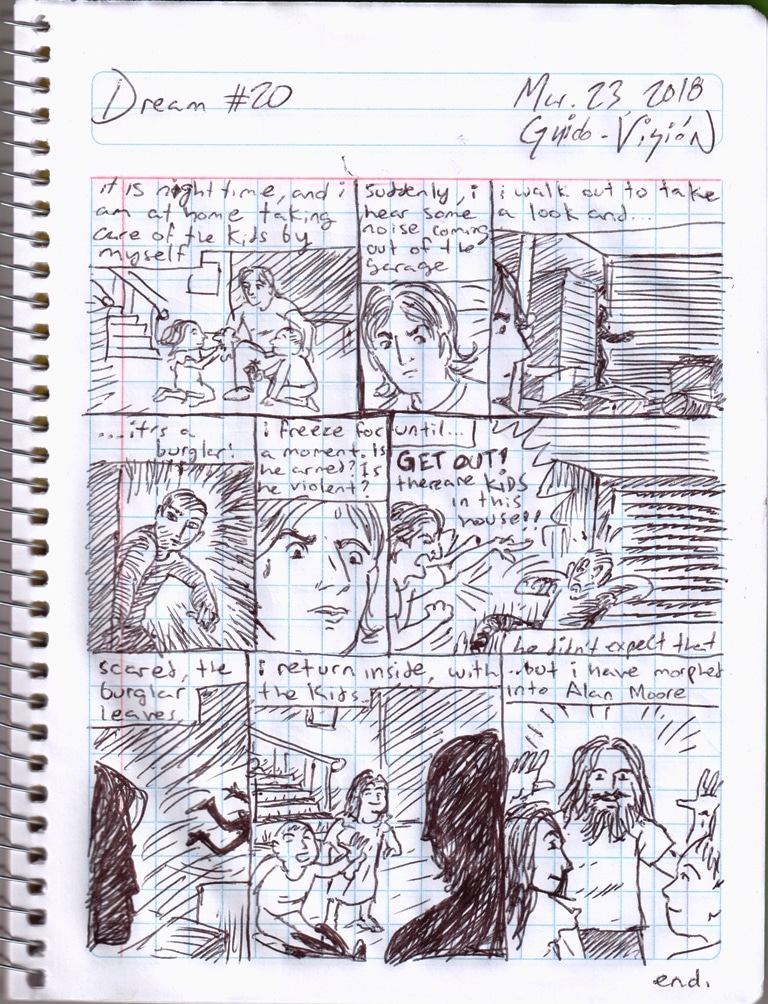 Dream #20
Mar. 23 2018
Guido-Visión
it is night time, and i
am at home taking
care of the kids by
myself
suddenly, i
hear some
noise coming
out of the
garage
i walk out to take
a look and...
...it's a
burglar!
i freeze for
a moment. Is
he armed? Is
he violent?
until...
GET OUT!
there are kids
in this
house!!
he didn't expect that
scared, the
burglar
leaves
i return inside, with
the kids..
..but i have morphed
into Alan Moore
end.